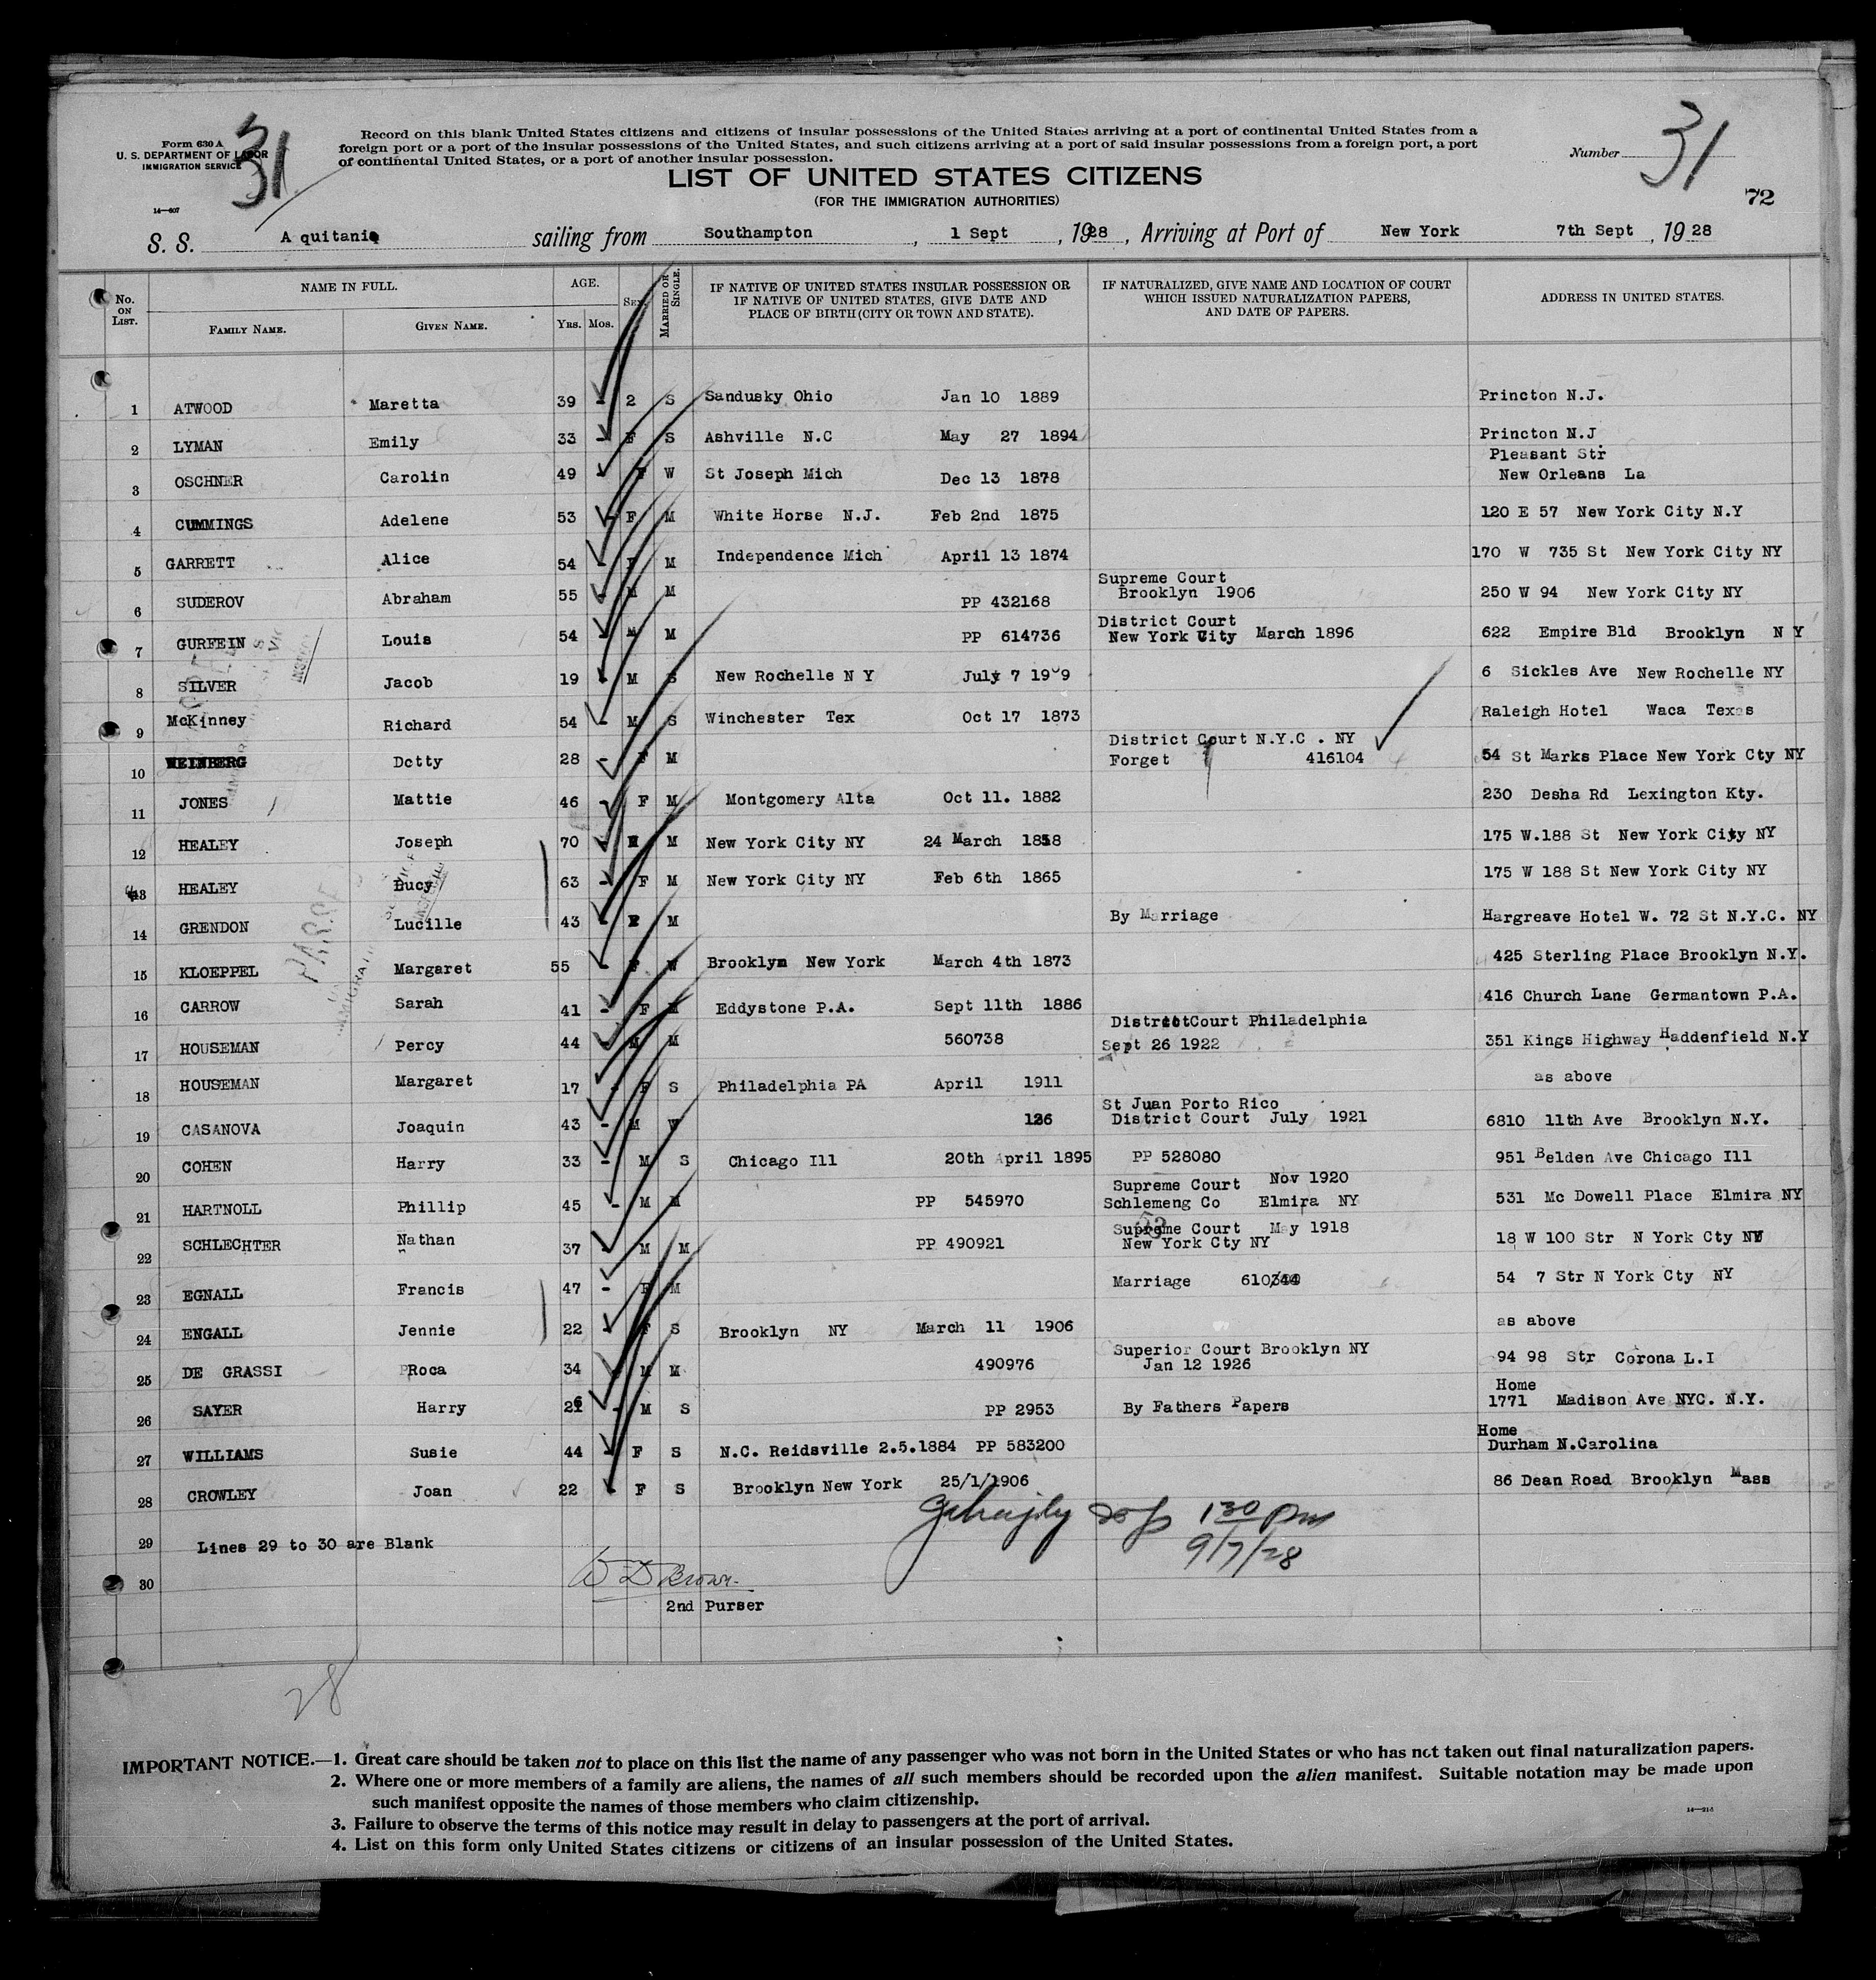 Form 630 A
U. S. DEPARTMENT OF LABOR
IMMIGRATION SERVICE
31
14—607
Record on this blank United States citizens and citizens of insular possessions of the United States arriving at a port of continental United States from a
foreign port or a port of the insular possessions of the United States, and such citizens arriving at a port of said insular possessions from a foreign port, a port
of continental United States, or a port of another insular possession.
Number 31
72
LIST OF UNITED STATES CITIZENS
(FOR THE IMMIGRATION AUTHORITIES)
S. S. Aquitania sailing from Southampton, 1 Sept, 1928, Arriving at Port of New York 7th Sept, 1928
No. ON LIST. NAME IN FULL. AGE. SEX. MARRIED OR SINGLE. IF NATIVE OF UNITED STATES INSULAR POSSESSION OR IF NATIVE OF UNITED STATES, GIVE DATE AND PLACE OF BIRTH (CITY OR TOWN AND STATE). IF NATURALIZED, GIVE NAME AND LOCATION OF COURT WHICH ISSUED NATURALIZATION PAPERS, AND DATE OF PAPERS. ADDRESS IN UNITED STATES.
FAMILY NAME. GIVEN NAME. YRS. MOS.
1 ATWOOD Maretta 39 - 2 S Sandusky Ohio Jan 10 1889 Princton N.J.
2 LYMAN Emily 33 - F S Ashville N.C May 27 1894 Princton N.J
3 OSCHNER Carolin 49 - F W St Joseph Mich Dec 13 1878 Pleasant Str New Orleans La
4 CUMMINGS Adelene 53 - F M White Horse N.J. Feb 2nd 1875 120 E 57 New York City N.Y
5 GARRETT Alice 54 - F M Independence Mich April 13 1874 170 W 735 St New York City NY
6 SUDEROV Abraham 55 - M M PP 432168 Supreme Court Brooklyn 1906 250 W 94 New York City NY
7 GURFEIN Louis 54 - M M PP 614736 District Court New York City March 1896 622 Empire Bld Brooklyn N Y
8 SILVER Jacob 19 - M S New Rochelle N Y July 7 1909 6 Sickles Ave New Rochelle NY
9 McKinney Richard 54 - M S Winchester Tex Oct 17 1873 Raleigh Hotel Waca Texas
10 WEINBERG Dotty 28 - F M District Court N.Y.C . NY Forget 416104 54 St Marks Place New York Cty NY
11 JONES Mattie 46 - F M Montgomery Alta Oct 11. 1882 230 Desha Rd Lexington Kty.
12 HEALEY Joseph 70 - M M New York City NY 24 March 1858 175 W.188 St New York City NY
13 HEALEY Lucy 63 - F M New York City NY Feb 6th 1865 175 W 188 St New York City NY
14 GRENDON Lucille 43 - F M By Marriage Hargreave Hotel W. 72 St N.Y.C. NY
15 KLOEPPEL Margaret 55 - F W Brooklyn New York March 4th 1873 425 Sterling Place Brooklyn N.Y.
16 CARROW Sarah 41 - F M Eddystone P.A. Sept 11th 1886 416 Church Lane Germantown P.A.
17 HOUSEMAN Percy 44 - M M 560738 District Court Philadelphia Sept 26 1922 351 Kings Highway Haddenfield N.Y
18 HOUSEMAN Margaret 17 - F S Philadelphia PA April 1911 as above
19 CASANOVA Joaquin 43 - M W 126 St Juan Porto Rico District Court July 1921 6810 11th Ave Brooklyn N.Y.
20 COHEN Harry 33 - M S Chicago Ill 20th April 1895 PP 528080 951 Belden Ave Chicago Ill
21 HARTNOLL Phillip 45 - M M PP 545970 Supreme Court Nov 1920 Schlemeng Co Elmira NY 531 Mc Dowell Place Elmira NY
22 SCHLECHTER Nathan 37 - M M PP 490921 Supreme Court May 1918 New York Cty NY 18 W 100 Str N York Cty NY
23 EGNALL Francis 47 - F M Marriage 54 7 Str N York Cty NY
24 ENGALL Jennie 22 - F S Brooklyn NY March 11 1906 as above
25 DE GRASSI Roca 34 - M M 490976 Superior Court Brooklyn NY Jan 12 1926 94 98 Str Corona L.I
26 SAYER Harry 26 - M S PP 2953 By Fathers Papers Home 1771 Madison Ave NYC. N.Y.
27 WILLIAMS Susie 44 - F S N.C. Reidsville 2.5.1884 PP 583200 Home Durham N.Carolina
28 CROWLEY Joan 22 - F S Brooklyn New York 25/1/1906 86 Dean Road Brooklyn Mass
29 Lines 29 to 30 are Blank
130 pm
9/7/28
30
W D Brown
2nd Purser
28
IMPORTANT NOTICE.—1. Great care should be taken not to place on this list the name of any passenger who was not born in the United States or who has not taken out final naturalization papers.
2. Where one or more members of a family are aliens, the names of all such members should be recorded upon the alien manifest. Suitable notation may be made upon
such manifest opposite the names of those members who claim citizenship.
3. Failure to observe the terms of this notice may result in delay to passengers at the port of arrival.
4. List on this form only United States citizens or citizens of an insular possession of the United States.